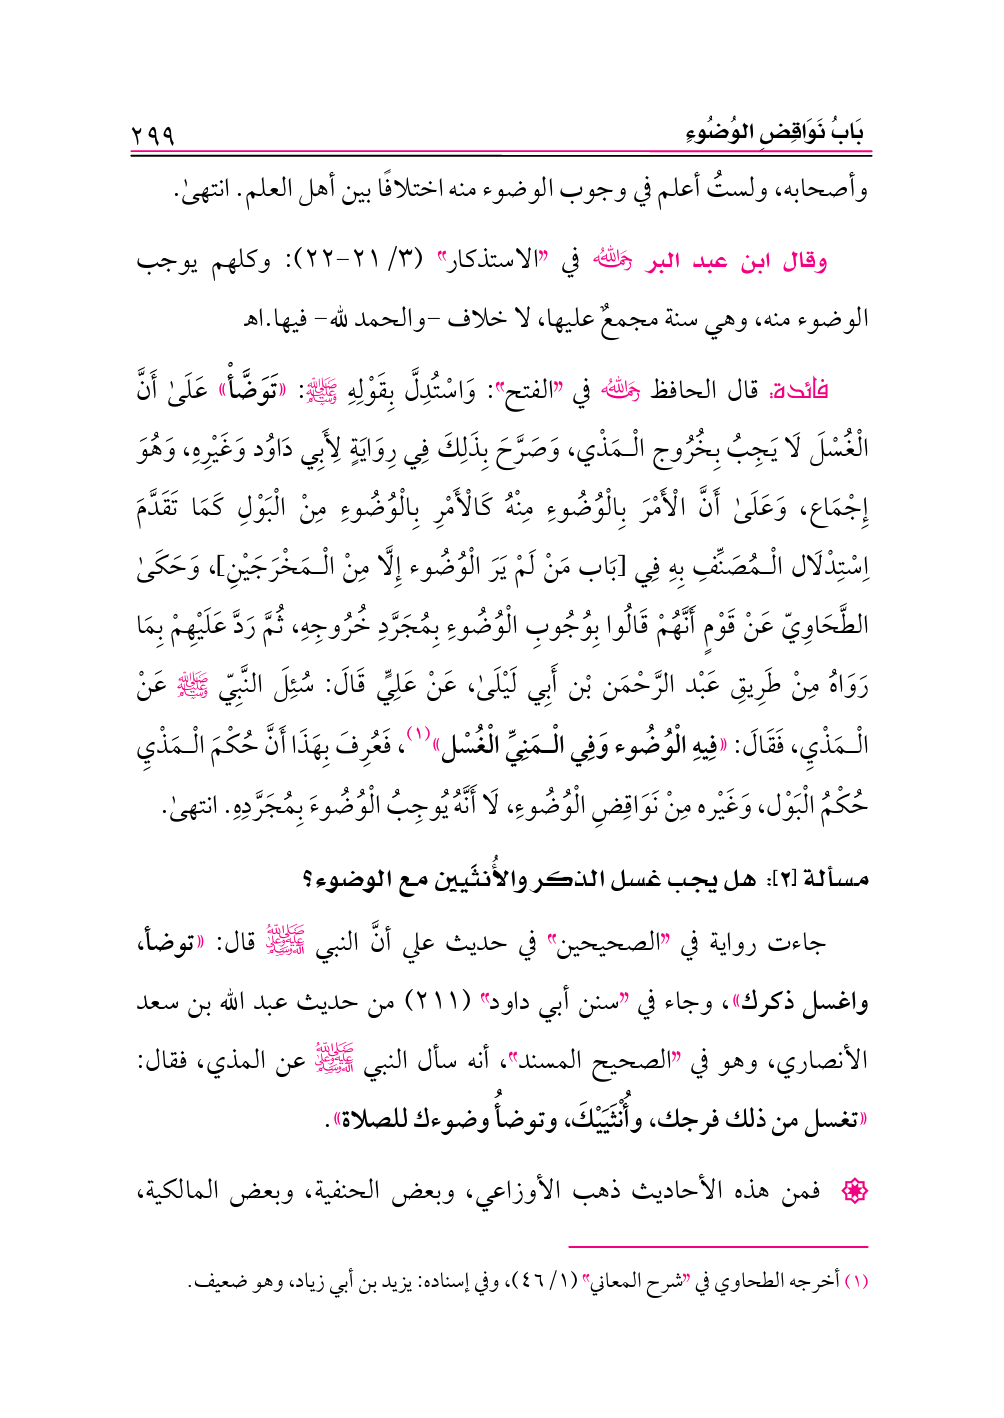 بَابُ نَوَاقِضِ الوُضُوءِ ٢٩٩
وأصحابه، ولستُ أعلم في وجوب الوضوء منه اختلافًا بين أهل العلم. انتهىٰ.
وقال ابن عبد البر رحمه الله في "الاستذكار" (٣/ ٢١-٢٢): وكلهم يوجب
الوضوء منه، وهي سنة مجمعٌ عليها، لا خلاف -والحمد لله- فيها.اهـ
فائدة: قال الحافظ رحمه الله في "الفتح": وَاسْتُدِلَّ بِقَوْلِهِ ﷺ: «تَوَضَّأْ» عَلَىٰ أَنَّ
الْغُسْلَ لَا يَجِبُ بِخُرُوجِ الْـمَذْي، وَصَرَّحَ بِذَلِكَ فِي رِوَايَةٍ لِأَبِي دَاوُد وَغَيْرِهِ، وَهُوَ
إِجْمَاع، وَعَلَىٰ أَنَّ الْأَمْرَ بِالْوُضُوءِ مِنْهُ كَالْأَمْرِ بِالْوُضُوءِ مِنْ الْبَوْلِ كَمَا تَقَدَّمَ
اِسْتِدْلَال الْـمُصَنِّفِ بِهِ فِي [بَاب مَنْ لَمْ يَرَ الْوُضُوء إِلَّا مِنْ الْـمَخْرَجَيْنِ]، وَحَكَىٰ
الطَّحَاوِيّ عَنْ قَوْمٍ أَنَّهُمْ قَالُوا بِوُجُوبِ الْوُضُوءِ بِمُجَرَّدِ خُرُوجِهِ، ثُمَّ رَدَّ عَلَيْهِمْ بِمَا
رَوَاهُ مِنْ طَرِيقِ عَبْد الرَّحْمَن بْن أَبِي لَيْلَىٰ، عَنْ عَلِيٍّ قَالَ: سُئِلَ النَّبِيّ ﷺ عَنْ
الْـمَذْيِ، فَقَالَ: «فِيهِ الْوُضُوء وَفِي الْـمَنِيِّ الْغُسْل»(١)، فَعُرِفَ بِهَذَا أَنَّ حُكْمَ الْـمَذْيِ
حُكْمُ الْبَوْل، وَغَيْره مِنْ نَوَاقِضِ الْوُضُوءِ، لَا أَنَّهُ يُوجِبُ الْوُضُوءَ بِمُجَرَّدِهِ. انتهىٰ.
مسألة [٢]: هل يجب غسل الذكر والأُنثَيين مع الوضوء؟
جاءت رواية في "الصحيحين" في حديث علي أنَّ النبي ﷺ قال: «توضأ،
واغسل ذكرك»، وجاء في "سنن أبي داود" (٢١١) من حديث عبد الله بن سعد
الأنصاري، وهو في "الصحيح المسند"، أنه سأل النبي ﷺ عن المذي، فقال:
«تغسل من ذلك فرجك، وأُنْثَيَيْكَ، وتوضأُ وضوءك للصلاة».
فمن هذه الأحاديث ذهب الأوزاعي، وبعض الحنفية، وبعض المالكية،
(١) أخرجه الطحاوي في "شرح المعاني" (١/ ٤٦)، وفي إسناده: يزيد بن أبي زياد، وهو ضعيف.